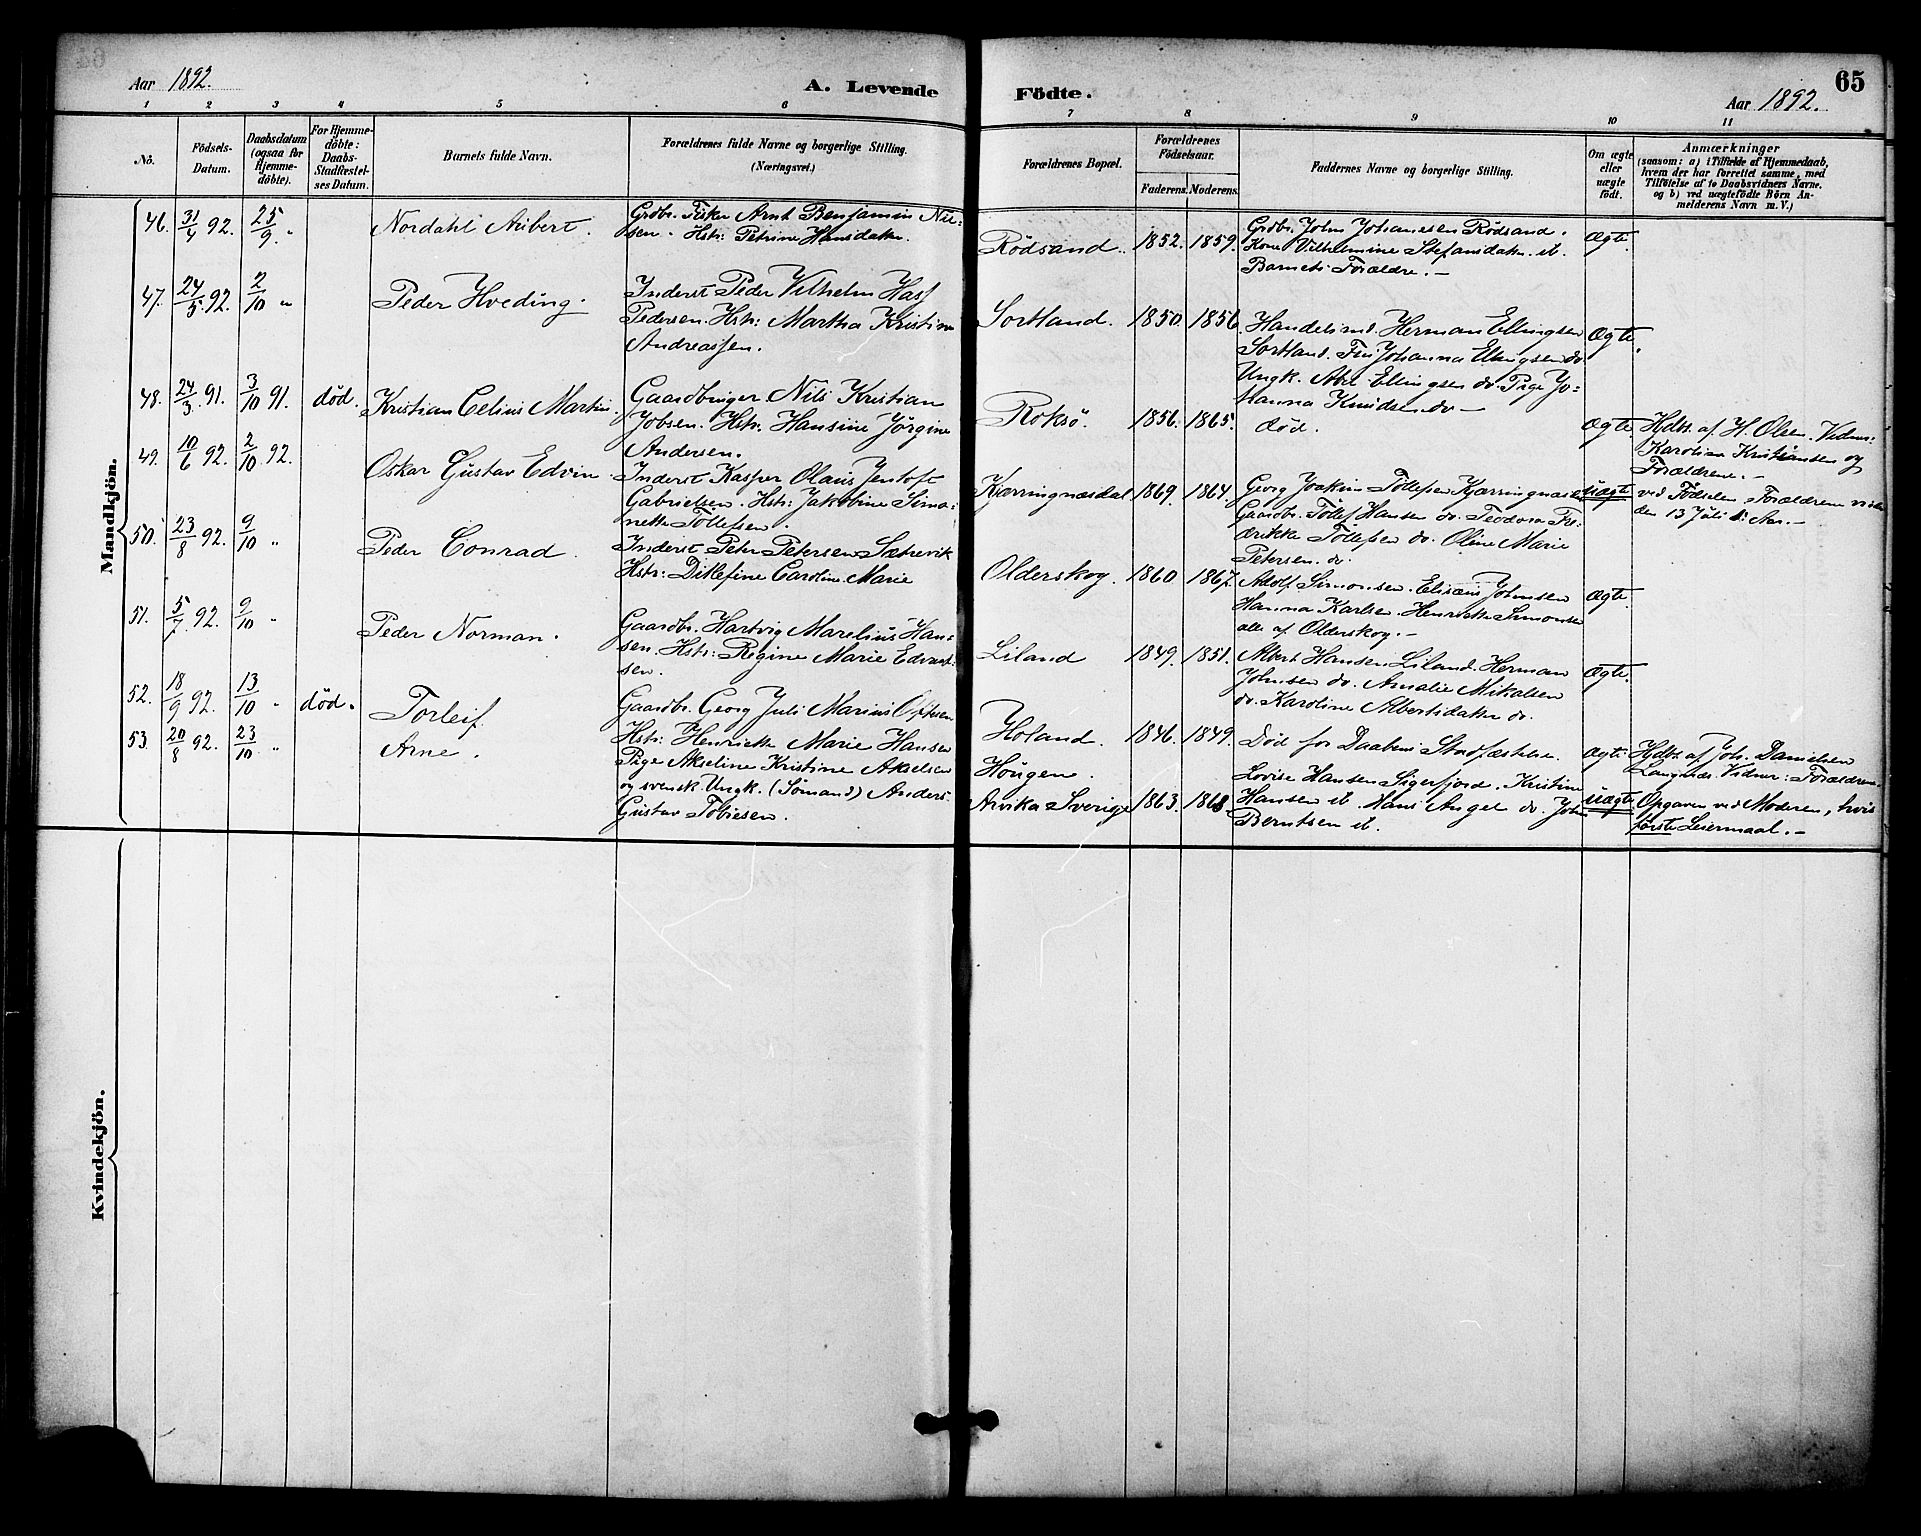 Aar 1892.
A. Levende
Födte.
65
Aar 1892.
1 2 3 4 5 6 7 8 9 10 11
No.
Födsels-
Datum.
Daabsdatum
(ogsaa for
Hjemme-
döbte).
For Hjemme-
döbte:
Daabs-
Stadfæstel-
ses Datum.
Barnets fulde Navn.
Forældrenes fulde Navne og borgerlige Stilling.
(Næringsvei.)
Forældrenes Bopæl.
Forældrenes
Födselsaar.
Faderens. Moderens.
Faddernes Navne og borgerlige Stilling.
Om ægte
eller
uægte
födt.
Anmærkninger
(saasom: a) i Tilfælde af Hjemmedaab,
hvem der har forrettet samme, med
Tilføielse af to Daabsvidners Navne,
og b) ved uægtefödte Börn An-
melderens Navn m. V.)
Mandkjön.
46. 31/4 92. 25/9 "
Nordahl Aubert.
Grdbr. Fisker Arnt Benjamin Nil-
sen. Hstr: Petrine Hansdatter.
Rödsand. 1852. 1859.
Grdbr. John Johanesen Rödsand.
Kone Vilhelmine Stefansdatter. ib.
Barnets Forældre. -
Ægte.
47. 24/5 92. 2/10 "
Peder Hveding.
Inderst Peder Vilhelm Hass
Pedersen. Hstr: Martha Kristine
Andreassen.
Sortland. 1850. 1856.
Handelsmd. Herman Ellingsen
Sortland. Fru Johanna Ellingsen do.
Ungk. Abel Ellingsen do. Pige Jo-
hanna Knudsen do -
Ægte.
48. 24/3 91. 3/10 91. död.
Kristian Celius Martin.
Gaardbruger Nils Kristian
Jobsen. Hstr. Hansine Jörgine
Andersen.
Roksö. 1856. 1865.
död.
Ægte.
Hdbt. af H. Olsen. Vidner:
Karolian Kristiansen og
Forældrene. -
49. 10/6 92. 2/10 92.
Oskar Gustav Edvin.
Inderst Kasper Olaus Jentoft
Gabrielsen. Hstr: Jakobine Simo-
nette Tollefsen.
Kjærringnæsdal 1869. 1864.
Georg Joakim Tollefsen Kjærringnæsdal
Gaardb. Tollef Hansen do. Teodora Fre-
drikke Tollefsen do. Oline Marie
Petersen. do.
uægte
ved Födselen. Forældrene viede
den 13 Juli . -
50. 23/8 92. 9/10 "
Peder Conrad.
Inderst Peter Petersen Sætrevik
Hstr: Ditlefine Caroline Marie
Olderskog. 1860 1867.
Adolf Simonsen. Elisæus Johnsen
Hanna Karlsen. Henriette Simonsen
alle af Olderskog. -
Ægte.
51. 5/7 92. 9/10 "
Peder Norman.
Gaardbr. Hartvig Marelius Han-
sen. Hstr: Regine Marie Edvard-
sen.
Liland 1849. 1851.
Albert Hansen Liland. Herman
Johnsen do. Amalie Mikalsen
do. Karoline Albertsdatter do.
Ægte.
52. 18/9 92. 13/10 " död.
Torleif.
Gaardb. Georg Juli Marius
Hstr: Henriette Marie Hansen
Holand. 1846. 1849.
Död för Daabens Stadfæstelse.
Ægte.
Hjdbt. af Joh. Danielsen
Langnæs. Vidner: Forældrene.
53. 20/8 92. 23/10 "
Arne.
Pige Akseline Kristine Akselsen
og svensk Ungk. (Sömand) Anders
Gustav Tobiesen.
Hougen.
Arvika Sverige 1863. 1868
Lovise Hansen Sigerfjord. Kristine
Hansen ib. Hans Angel do. John
Berntsen ib.
uægte
Opgaven ved Moderen, hvis
første Leiermaal. -
Kvindekjön.